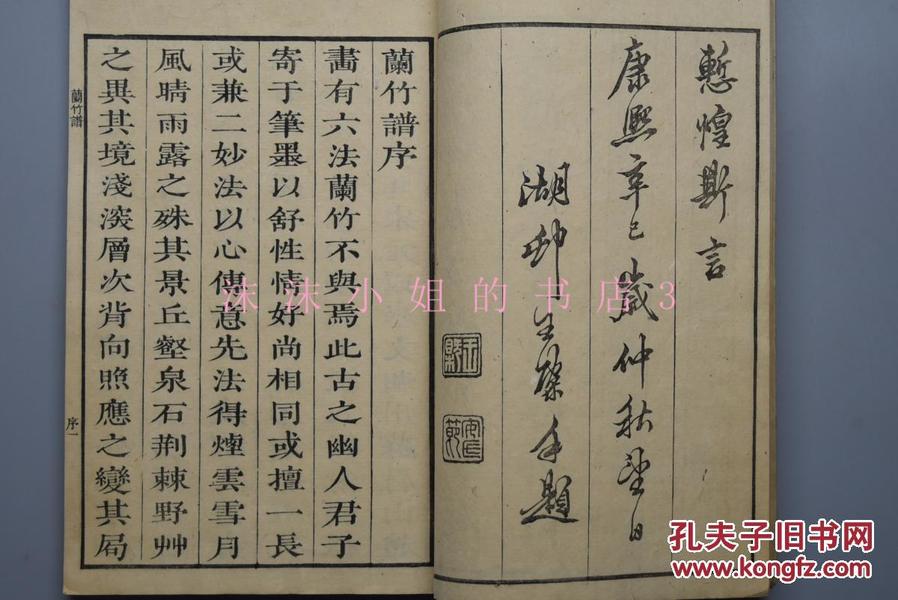 慙惶斯言
康熙辛巳歲仲秋望日
湖邨王槩手題
蘭竹譜序
畵有六法蘭竹不與焉此古之幽人君子
寄于筆墨以舒性情好尚相同或擅一長
或兼二妙法以心傳意先法得煙雲雪月
風晴雨露之殊其景丘壑泉石荆棘野艸
之異其境淺深層次背向照應之變其局
蘭竹譜
序一
沫沫小姐的书店3
孔夫子旧书网
www.kongfz.com